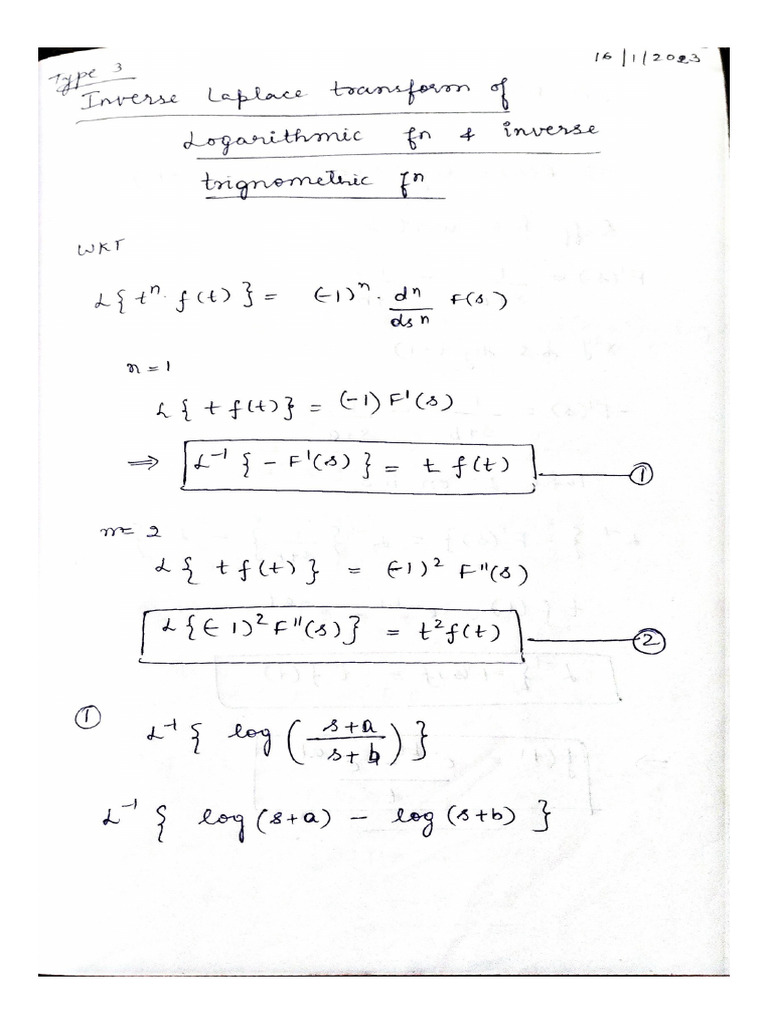 Type 3
16/1/2023
Inverse Laplace transform of
Logarithmic fn & inverse
trignometric fn
WKT
L{t^n. f(t)} = (-1)^n. d^n/ds^n F(s)
n = 1
L{t f(t)} = (-1) F'(s)
⇒ L^-1 {- F'(s)} = t f(t) ①
n= 2
L{t f(t)} = (-1)^2 F''(s)
L{(-1)^2 F''(s)} = t^2 f(t) ②
① L^-1 { log ( s+a / s+b ) }
L^-1 { log (s+a) - log (s+b) }